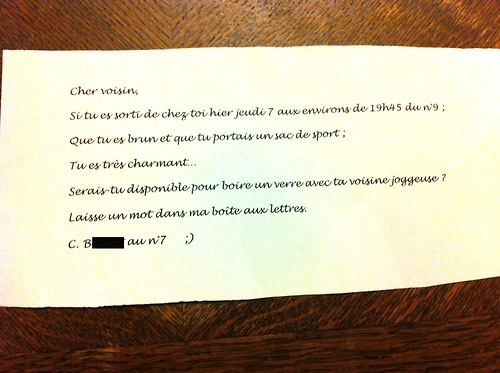 Cher voisin,
Si tu es sorti de chez toi hier jeudi 7 aux environs de 19h45 du n°9 ;
Que tu es brun et que tu portais un sac de sport ;
Tu es très charmant...
Serais-tu disponible pour boire un verre avec ta voisine joggeuse ?
Laisse un mot dans ma boîte aux lettres.
C. B au n°7 ;)